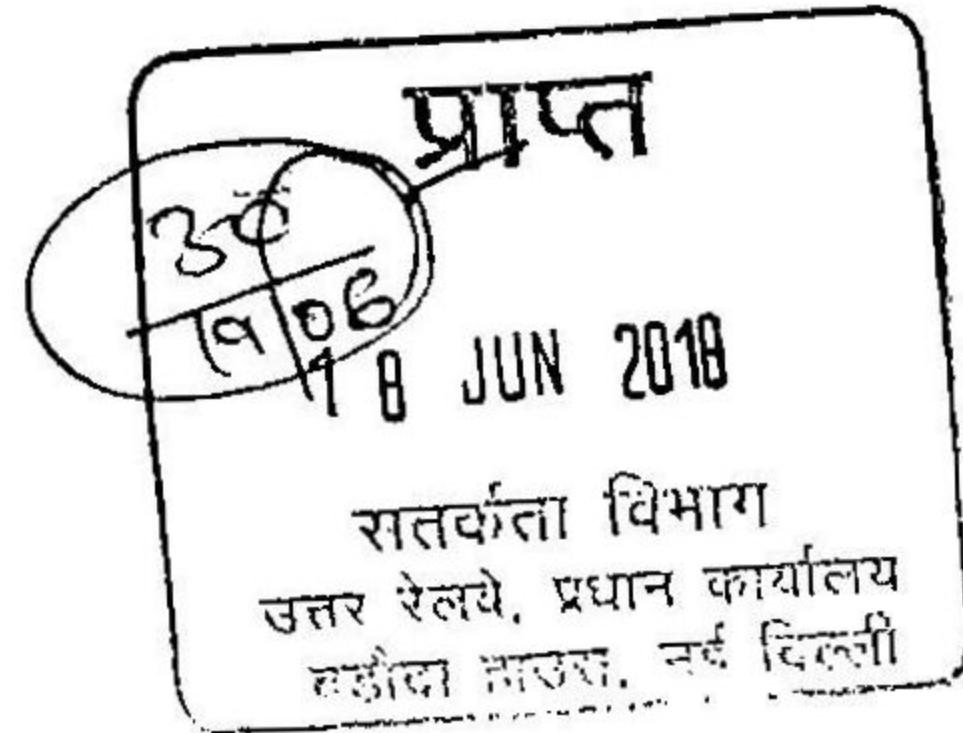 प्राप्त
19 06
18 JUN 2018
सतर्कता विभाग
उत्तर रेलवे, प्रधान कार्यालय
बड़ौदा हाउस, नई दिल्ली